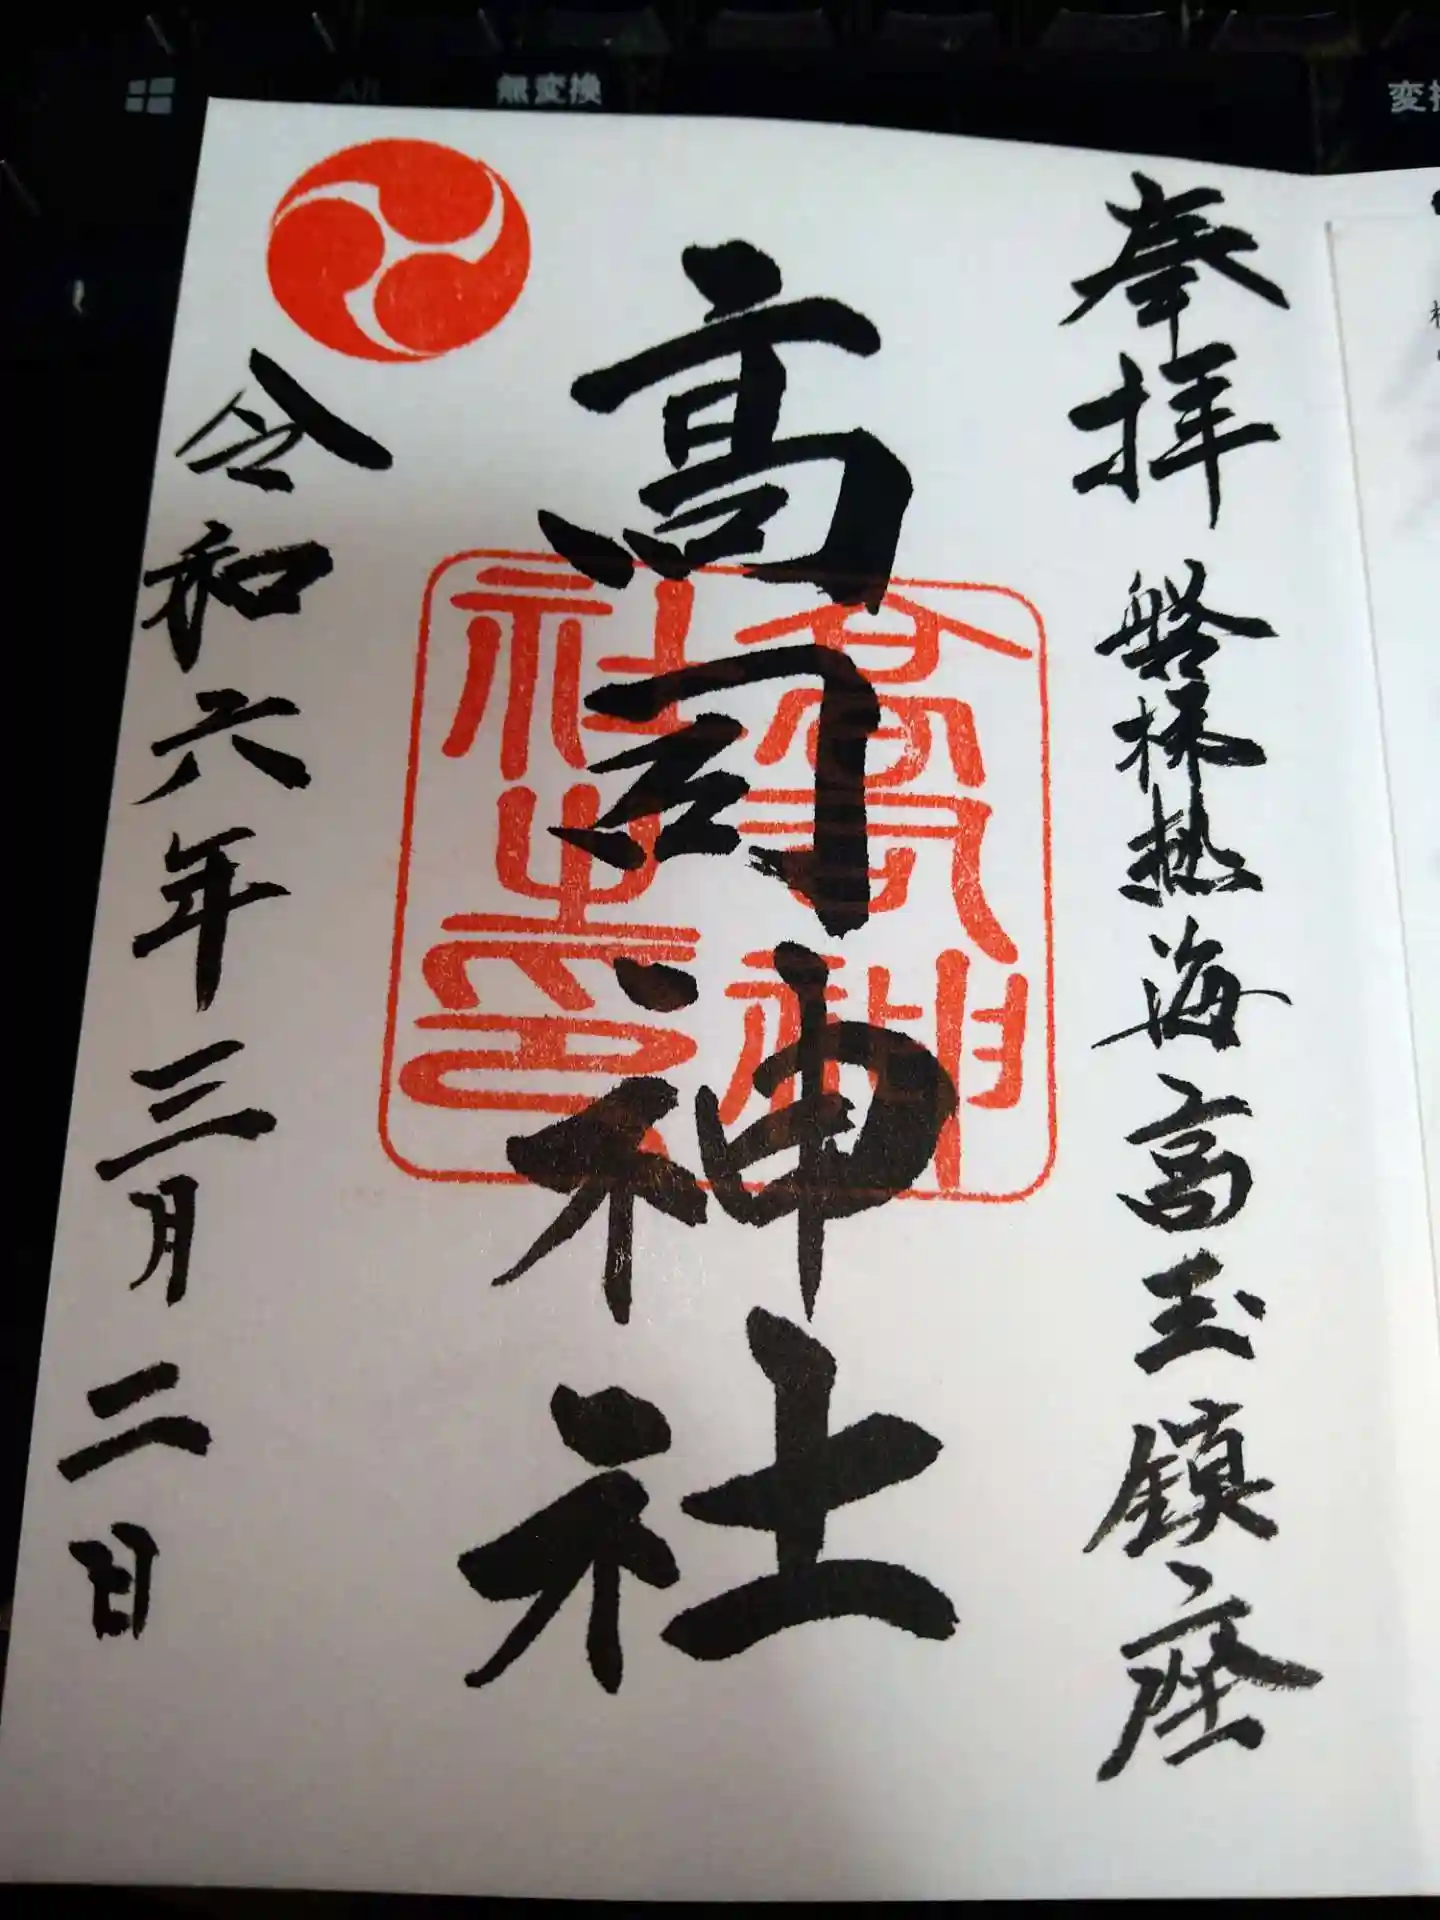 無変換
奉拝 磐梯熱海高玉鎮座
高司神社
高司神
社之印
令和六年三月二日